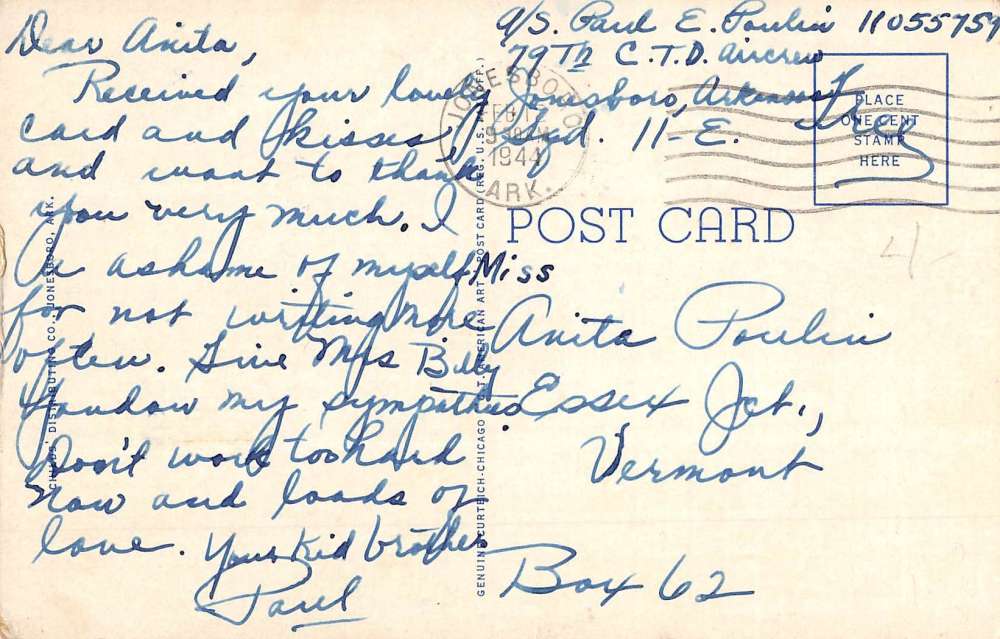 Dear Anita,
Received your lovely
card and kisses
and want to thank
you very much. I
a ashame of myself
for not writing more
often. Give Mrs Billy
Yandow my sympathies.
Don't work too hard
now and loads of
love. Your Kid brother
Paul
CHILDS' DISTRIBUTING CO., JONESBORO, ARK.
GENUINE CURTEICH-CHICAGO "C.T. AMERICAN ART" POST CARD (REG. U.S. PAT. OFF.)
A/S. Paul E. Poulin 11055759
79Th C.T.D. Aircrew
Jonesboro, Arkansas
Sqd. 11-E.
Free
JONESBORO
FEB
1944
ARK.
PLACE
ONE CENT
STAMP
HERE
POST CARD
4-
Miss
Anita Poulin
Essex Jct.,
Vermont
Box 62